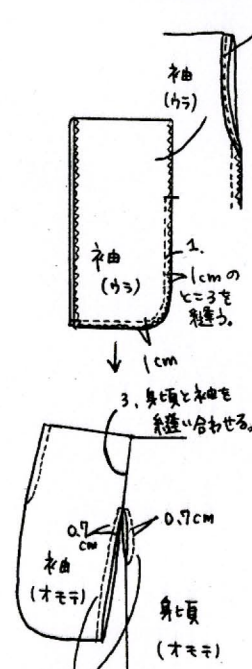 袖
(ウラ)
袖
(ウラ)
1.
1cmの
ところを
縫う。
1cm
3、身頃と袖を
縫い合わせる。
0.7
cm
0.7cm
袖
(オモテ)
身頃
(オモテ)